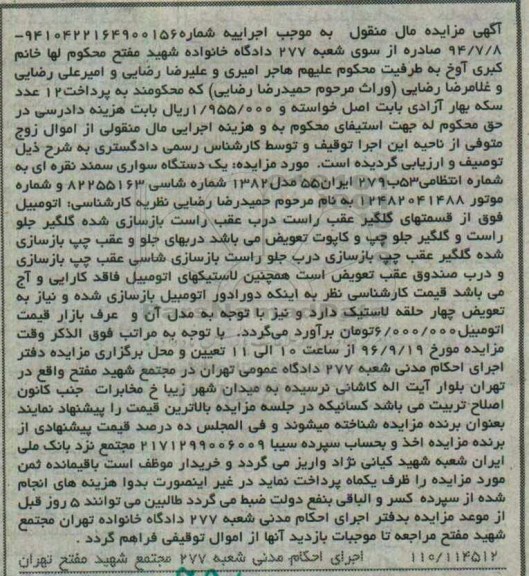 آگهی مزایده مال منقول به موجب اجراییه شماره۹۴۱۰۴۲۲۱۶۴۹۰۰۱۵۶-
۹۴/۷/۸ صادره از سوی شعبه ۲۷۷ دادگاه خانواده شهید مفتح محکوم لها خانم
کبری آوخ به طرفیت محکوم علیهم هاجر امیری و علیرضا رضایی و امیرعلی رضایی
و غلامرضا رضایی (وراث مرحوم حمیدرضا رضایی) که محکومند به پرداخت۱۲ عدد
سکه بهار آزادی بابت اصل خواسته و ۱/۹۵۵/۰۰۰ریال بابت هزینه دادرسی در
حق محکوم له جهت استیفای محکوم به و هزینه اجرایی مال منقولی از اموال زوج
متوفی از ناحیه این اجرا توقیف و توسط کارشناس رسمی دادگستری به شرح ذیل
توصیف و ارزیابی گردیده است. مورد مزایده: یک دستگاه سواری سمند نقره ای به
شماره انتظامی۵۳ب۲۷۹ ایران۵۵ مدل۱۳۸۲ شماره شاسی ۸۲۲۵۵۱۶۳ و شماره
موتور ۱۲۴۸۲۰۴۱۴۸۸ به نام مرحوم حمیدرضا رضایی نظریه کارشناسی: اتومبیل
فوق از قسمتهای گلگیر عقب راست درب عقب راست بازسازی شده گلگیر جلو
راست و گلگیر جلو چپ و کاپوت تعویض می باشد دربهای جلو و عقب چپ بازسازی
شده گلگیر عقب چپ بازسازی درب جلو راست بازسازی شاسی عقب چپ بازسازی
و درب صندوق عقب تعویض است همچنین لاستیکهای اتومبیل فاقد کارایی و آج
می باشد قیمت کارشناسی نظر به اینکه دورادور اتومبیل بازسازی شده و نیاز به
تعویض چهار حلقه لاستیک دارد و نیز با توجه به مدل آن و عرف بازار قیمت
اتومبیل۶/۰۰۰/۰۰۰تومان برآورد میگردد. با توجه به مراتب فوق الذکر وقت
مزایده مورخ ۹۶/۹/۱۹ از ساعت ۱۰ الی ۱۱ تعیین و محل برگزاری مزایده دفتر
اجرای احکام مدنی شعبه ۲۷۷ دادگاه عمومی تهران در مجتمع شهید مفتح واقع در
تهران بلوار آیت اله کاشانی نرسیده به میدان شهر زیبا خ مخابرات جنب کانون
اصلاح تربیت می باشد کسانیکه در جلسه مزایده بالاترین قیمت را پیشنهاد نمایند
بعنوان برنده مزایده شناخته میشوند و فی المجلس ده درصد قیمت پیشنهادی از
برنده مزایده اخذ و بحساب سپرده سیبا ۲۱۷۱۲۹۹۰۰۶۰۰۹ مجتمع نزد بانک ملی
ایران شعبه شهید کیانی نژاد واریز می گردد و خریدار موظف است باقیمانده ثمن
مورد مزایده را ظرف یکماه پرداخت نماید در غیر اینصورت بدوا هزینه های انجام
شده از سپرده کسر و الباقی بنفع دولت ضبط می گردد طالبین می توانند ۵ روز قبل
از موعد مزایده بدفتر اجرای احکام مدنی شعبه ۲۷۷ دادگاه خانواده تهران مجتمع
شهید مفتح مراجعه تا موجبات بازدید آنها از اموال توقیفی فراهم گردد .
۱۱۰/۱۱۴۵۱۲ اجرای احکام مدنی شعبه ۲۷۷ مجتمع شهید مفتح تهران